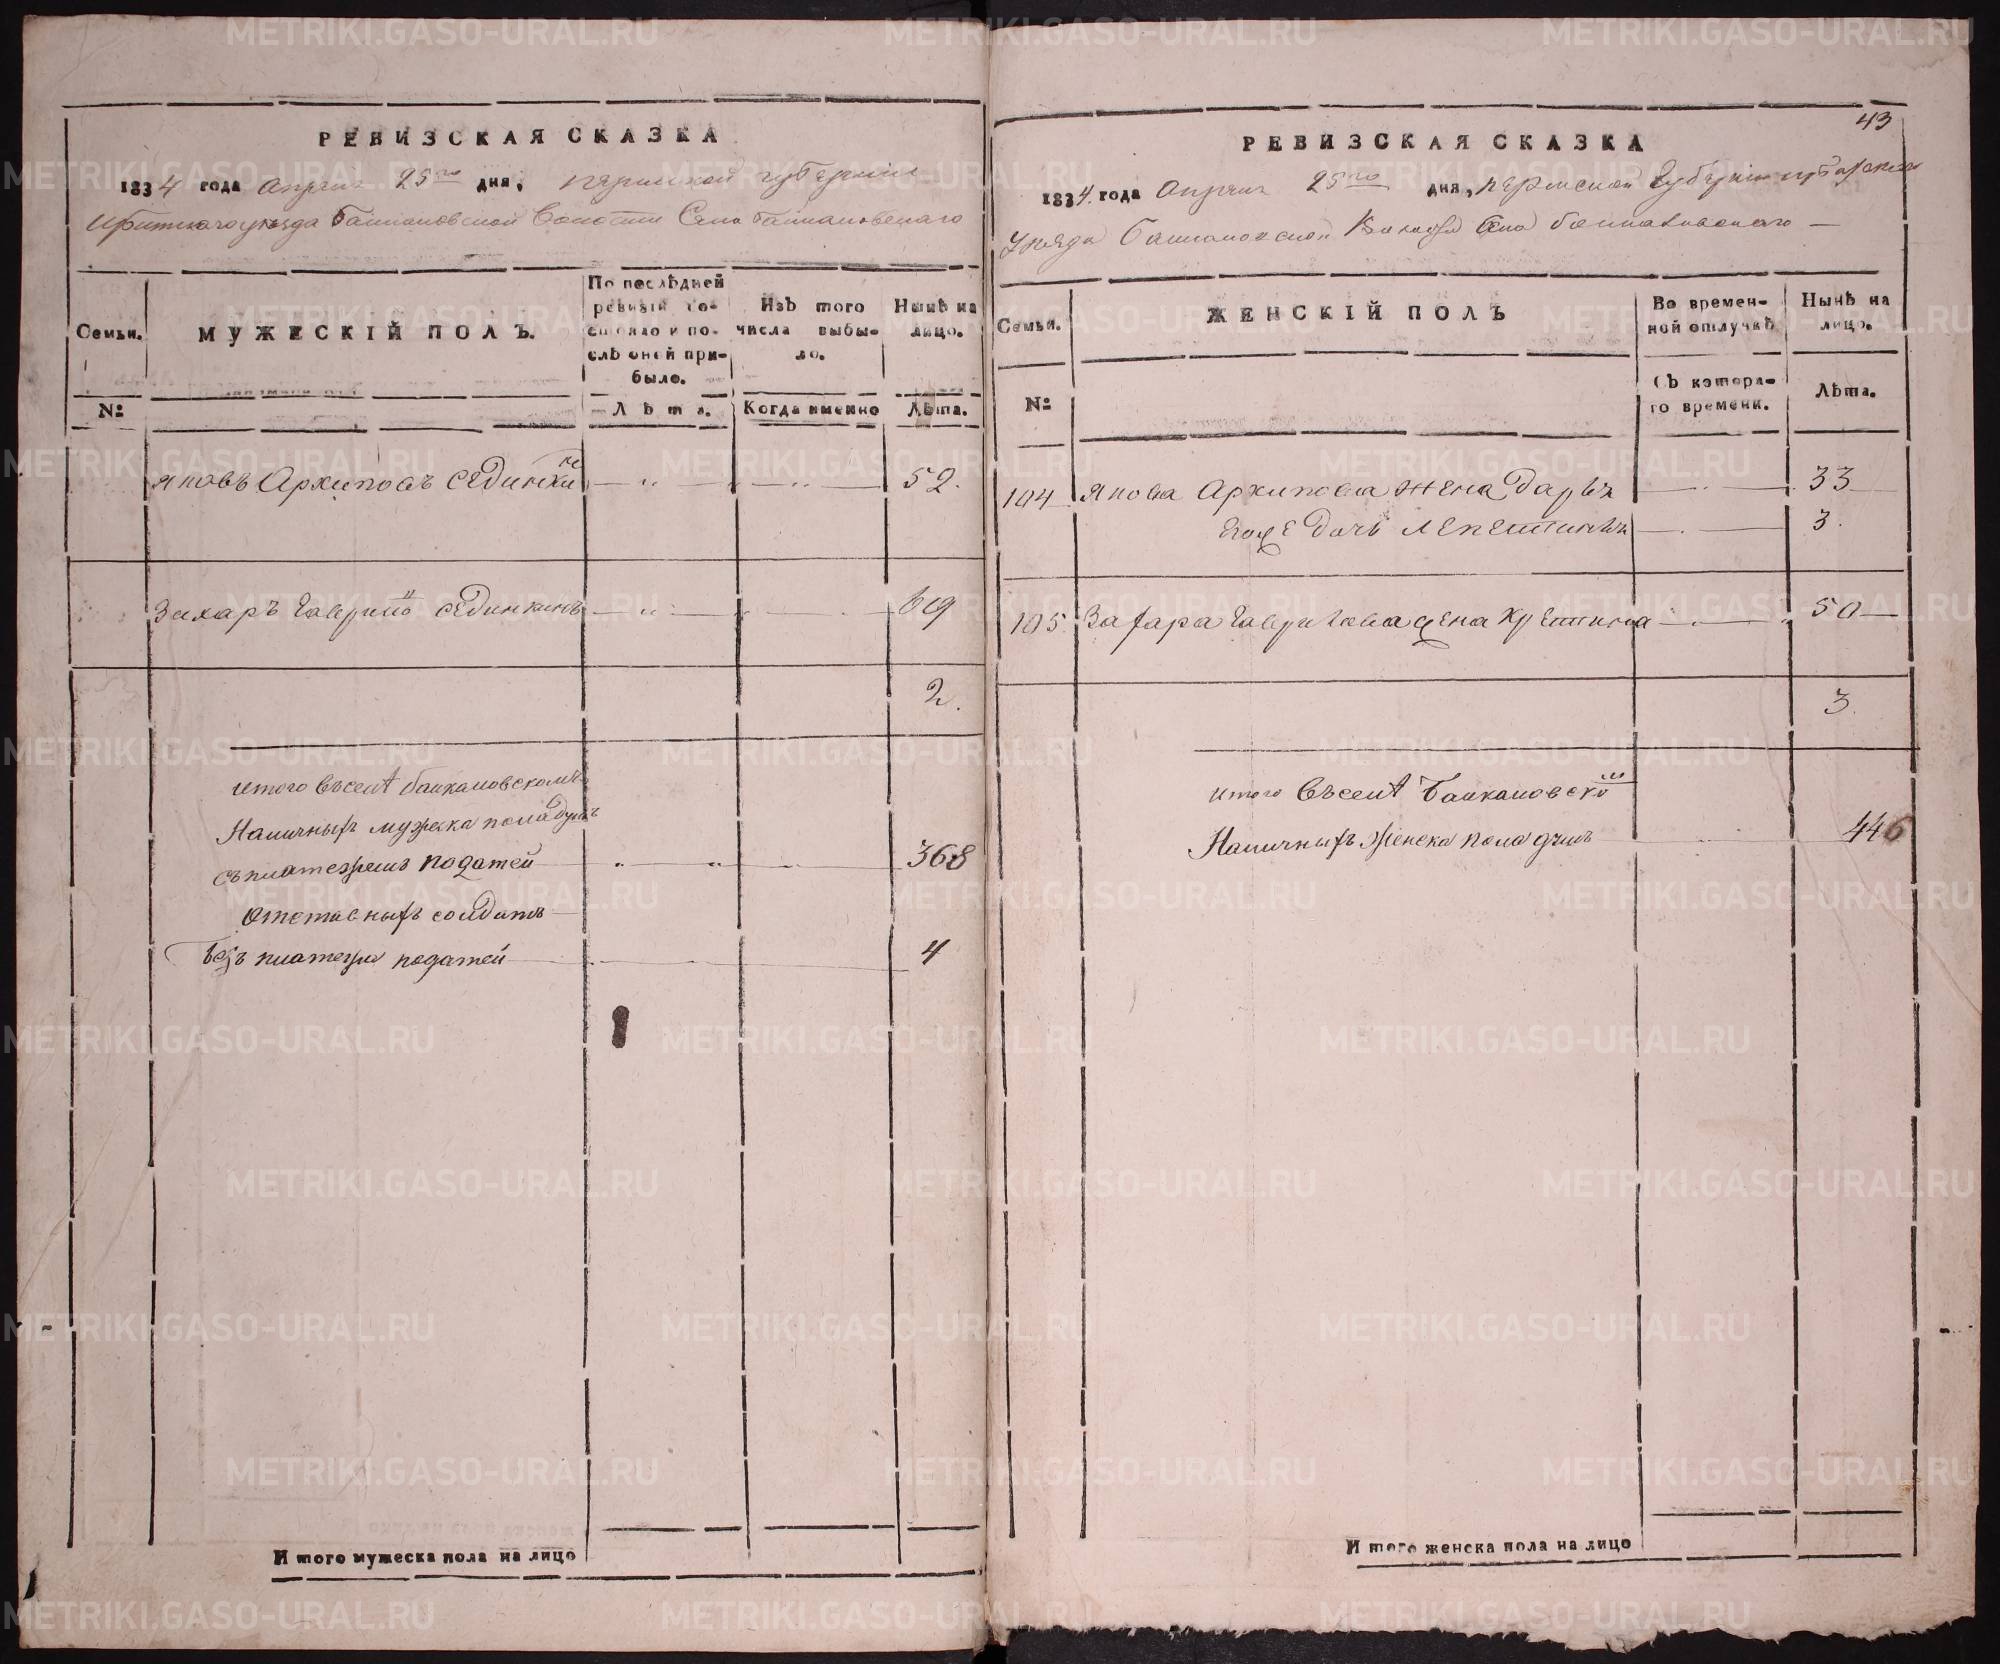 РЕВИЗСКАЯ СКАЗКА
1834 года апреля 25го дня, пермской губернии
Ирбитскаго уезда Байкаловской Волости Села Байкаловскаго
Семьи.
МУЖЕСКІЙ ПОЛЪ.
По послѣдней ревизіи состояло и послѣ оней прибыло.
Изъ того числа выбыло.
Нынѣ на лицо.
№
Лѣта.
Когда имянно
Лѣта.
Яковъ Архиповъ Сединкин 52.
Захаръ Гаврилов Сединкинъ 69
2.
итого въ селе Байкаловскомъ
Наличныхъ мужеска пола душъ
съ платежемъ податей 368
Отставныхъ солдатъ
Безъ платежа податей 4
И того мужеска пола на лицо
43
РЕВИЗСКАЯ СКАЗКА
1834 года апреля 25го дня, пермской Губернии Ирбитскаго
Уезда Байкаловской Волости Села Байкаловскаго
Семьи.
ЖЕНСКІЙ ПОЛЪ
Во временной отлучкѣ
Нынѣ на лицо.
№
Съ котораго времени.
Лѣта.
104 Якова Архипова Жена Дарья 33
Егоже Дочь Лепестинья 3.
105 Захара Гаврилова жена Хрестина 50
3.
итого Въ селе Байкаловском
Наличныхъ Женска пола душъ 446
И того женска пола на лицо
METRIKI.GASO-URAL.RU